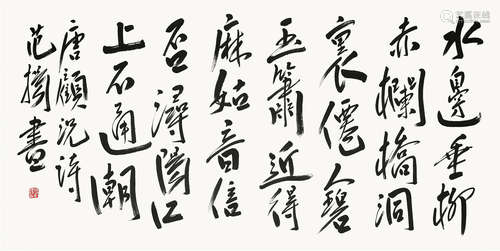 水邊垂柳
赤欄橋洞
裏僊人碧
玉簫近得
麻姑音信
否潯陽江
上不通潮
唐顧況詩
范揚書